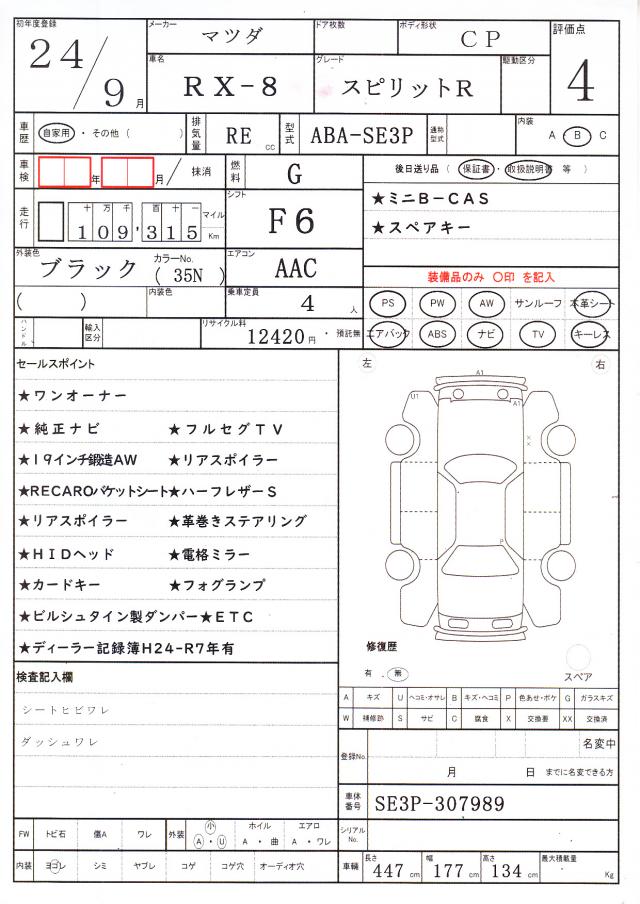 初年度登録 メーカー マツダ ドア枚数 ボディ形状 CP 評価点
24/9月 4
車名 RX-8 グレード スピリットR 駆動区分
車歴 自家用・その他( ) 排気量 RE cc 型式 ABA-SE3P 通称型式 内装 A B C
車検 年 月 / 抹消 燃料 G 後日送り品 ( 保証書・取扱説明書 等 )
走行 十万千百十一 109,315 マイル Km シフト F6
★ミニB-CAS
★スペアキー
外装色 ブラック カラーNo. ( 35N ) エアコン AAC
装備品のみ ○印 を記入
( ) 内装色 乗車定員 4 人
PS PW AW サンルーフ 本革シート
ハンドル 輸入区分 リサイクル料 12420円・預託無 エアバック ABS ナビ TV キーレス
セールスポイント 左 右
★ワンオーナー
★純正ナビ ★フルセグTV
★19インチ鍛造AW ★リアスポイラー
★RECAROバケットシート★ハーフレザーS
★リアスポイラー ★革巻きステアリング
★HIDヘッド ★電格ミラー
★カードキー ★フォグランプ
★ビルシュタイン製ダンパー★ETC
★ディーラー記録簿H24-R7年有
A1
U1 A1
XX
P
修復歴
有 . 無 スペア
検査記入欄
シートヒビワレ
ダッシュワレ
A キズ U ヘコミ・オサレ B キズ・ヘコミ P 色あせ・ボケ G ガラスキズ
W 補修跡 S サビ C 腐食 X 交換要 XX 交換済
登録No. 名変中
月 日 までに名変できる方
車体番号 SE3P-307989
シリアルNo.
FW トビ石 傷A ワレ 外装 小 A・U ホイル A ・ 曲 エアロ A ・ ワレ
内装 ヨゴレ シミ ヤブレ コゲ コゲ穴 オーディオ穴
車輛 長さ 447 cm 幅 177 cm 高さ 134 cm 最大積載量 Kg